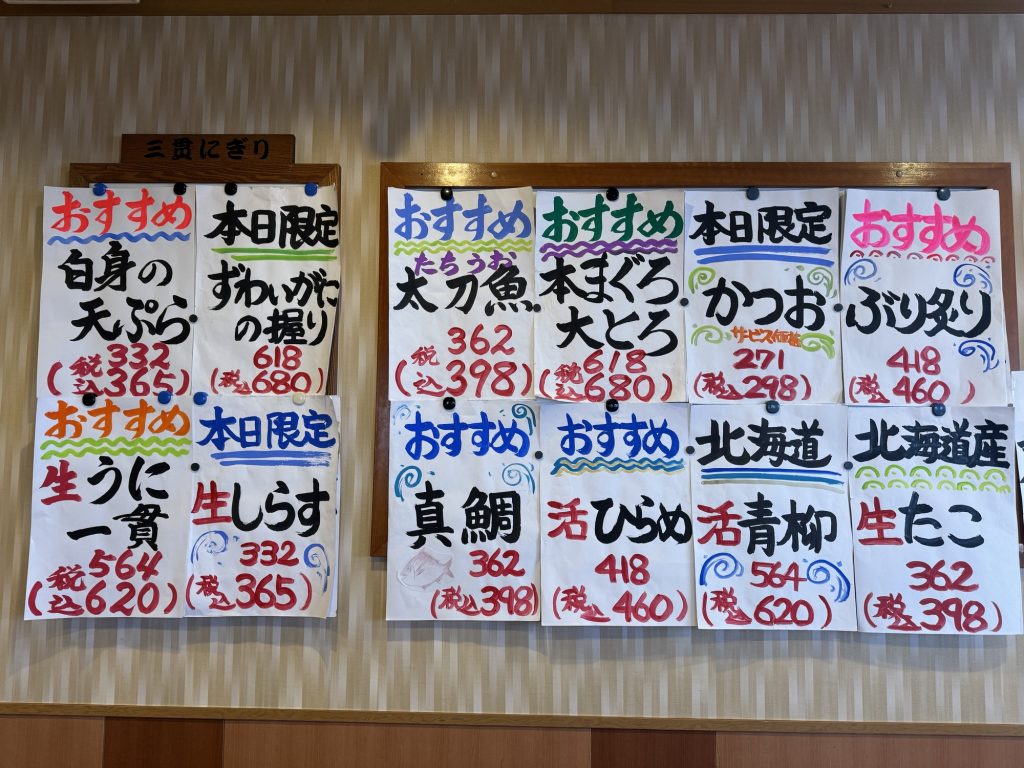 三貫にぎり
おすすめ
白身の
天ぷら
332
(税込365)
本日限定
ずわいがに
の握り
618
(税込680)
おすすめ
生うに
一貫
564
(税込620)
本日限定
生しらす
332
(税込365)
おすすめ
たちうお
太刀魚
362
(税込398)
おすすめ
本まぐろ
大とろ
618
(税込680)
本日限定
かつお
サービス価格
271
(税込298)
おすすめ
ぶり炙り
418
(税込460)
おすすめ
真鯛
362
(税込398)
おすすめ
活ひらめ
418
(税込460)
北海道
活青柳
564
(税込620)
北海道産
生たこ
362
(税込398)